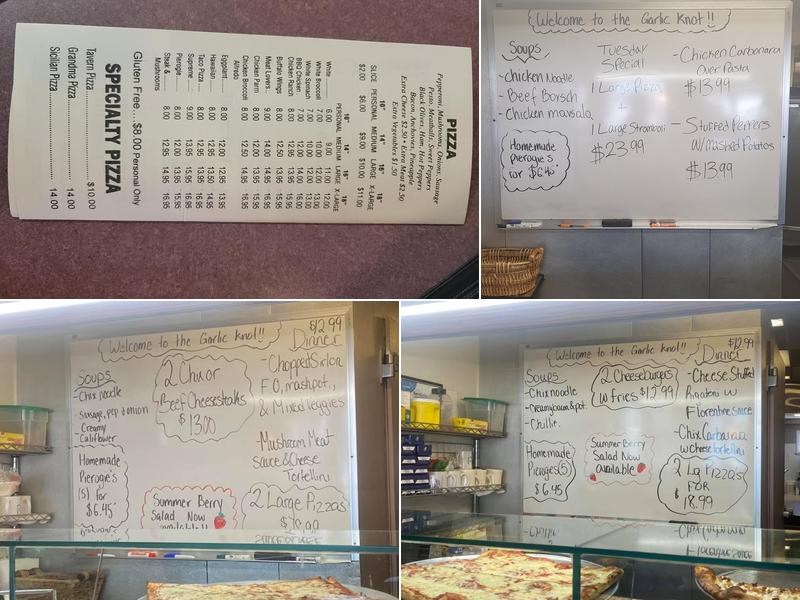 PIZZA
Pepperoni, Mushrooms, Onions, Sausage
Pesto, Meatballs, Sweet Peppers
Black Olives, Ham, Hot Peppers
Bacon, Anchovies, Pineapple
Extra Cheese $2.50 • Extra Meat $2.50
Extra Vegetables $1.50
10" 14" 16" 18"
SLICE PERSONAL MEDIUM LARGE X-LARGE
$2.00 $6.00 $9.00 $10.00 $11.00
10" 14" 16" 18"
PERSONAL MEDIUM LARGE X-LARGE
White 6.00 9.00 11.00 12.00
White Broccoli 7.00 10.00 12.00 13.00
White Spinach 7.00 10.00 12.00 13.00
BBQ Chicken 7.00
Chicken Ranch 8.00 12.50
Buffalo Wings 8.00 12.50
Meat Lovers 9.00
Chicken Parm 8.00
Chicken Broccoli 8.00 12.50 14.95 16.95
Alfredo
Eggplant 8.00
Hawaiian 8.00
Taco Pizza 8.00
Supreme 9.00
Pierogie 8.00
Steak & 8.00 12.95 14.95 16.95
Mushrooms
Gluten Free....$8.00 Personal Only
SPECIALTY PIZZA
Tavern Pizza $10.00
Grandma Pizza 14.00
Sicilian Pizza 14.00
Welcome to the Garlic Knot!!
Soups
- Chicken Noodle
- Beef Borsch
- Chicken marsala
Homemade
pierogie's
for $6.45
Tuesday
Special
1 Large Pizza
+
1 Large Stromboli
$23.99
- Chicken Carbonara
Over Pasta
$13.99
- Stuffed Peppers
w/Mashed Potatos
$13.99
Welcome to the Garlic Knot!!
Soups
- Chix noodle
- Sausage, pep & onion
- Creamy
Califlower
Homemade
Pierogie's
(5) for
$6.45
2 Chix or
Beef Cheesesteaks
$13.00
Summer Berry
Salad Now
available!!
$12.99
Dinner
- Chopped Sirloin
F.O, mashpot,
& Mixed Veggies
- Mushroom Meat
Sauce & Cheese
Tortellini
2 Large Pizzas
Welcome to the Garlic Knot!!
Soups
- Chix noodle
- Creamy bacon & pot.
- Chillie.
Homemade
Pierogie's (5)
$6.45
2 Cheeseburgers
w Fries $12.99
Summer Berry
Salad Now
available
$12.99
Dinner
- Cheese Stuffed
Rigatoni w
Florentine Sauce
- Chix Carbanaa
w Cheese Tortellini
2 Lg Pizzas
FOR
$18.99